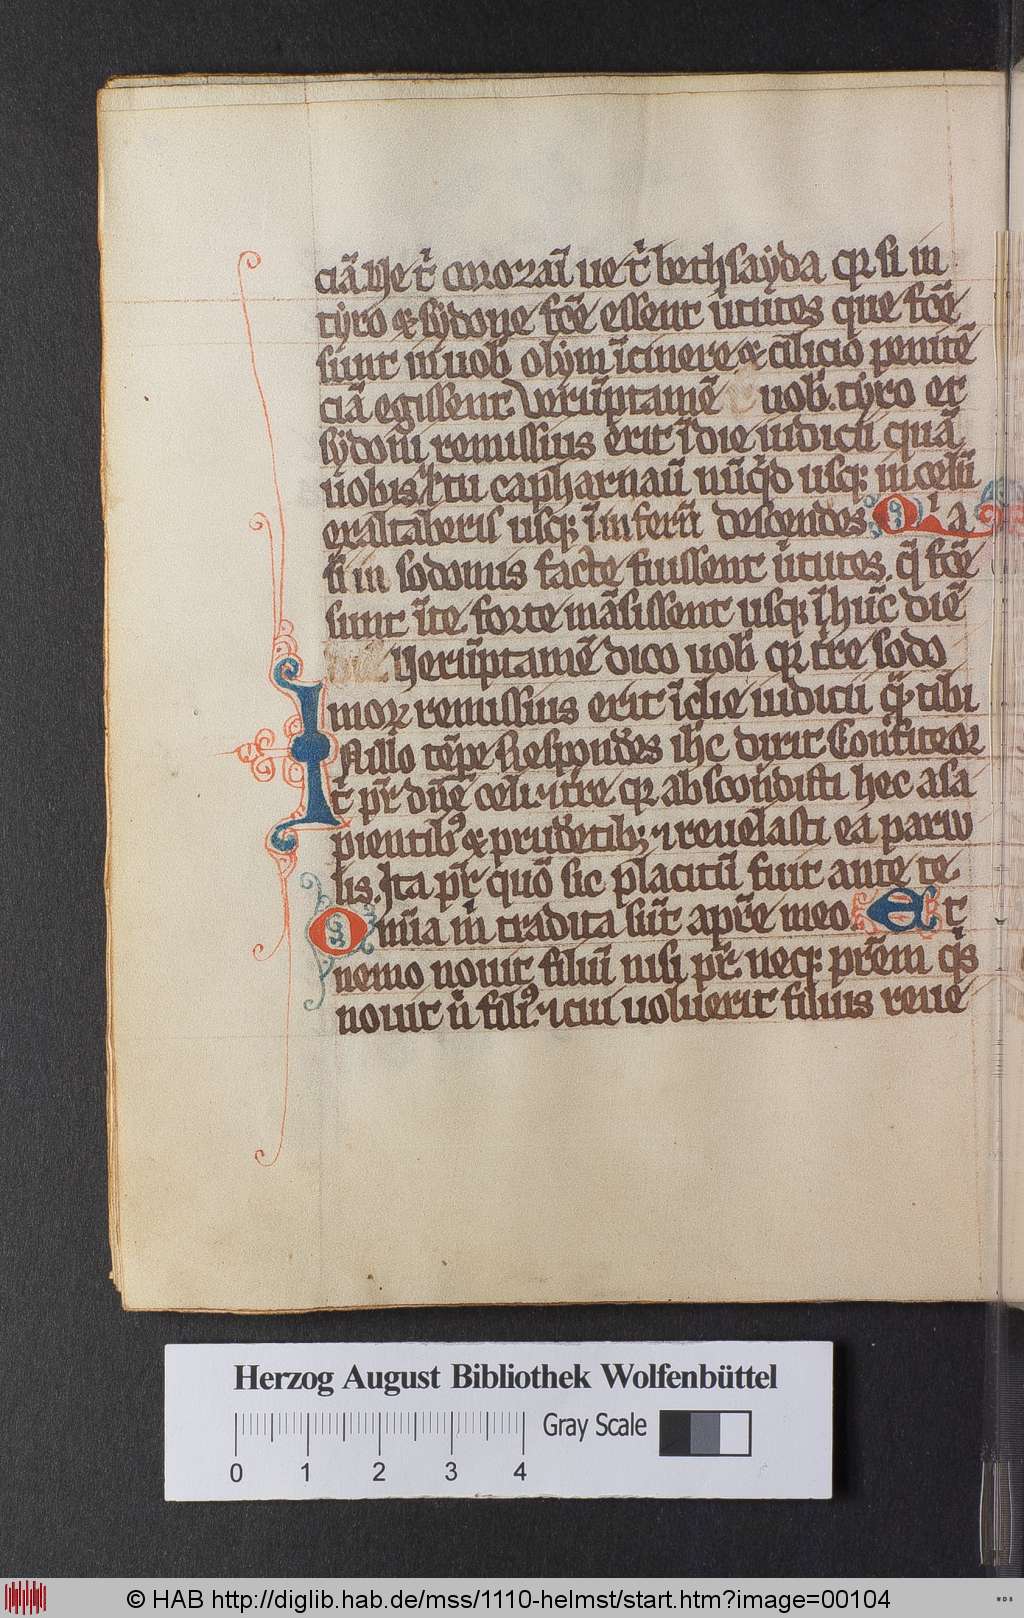 ciā. Ue t̄ corozaī ue t̄ bethsayda qr si in
tyro & sydone fc̄e essent ūtutes que fc̄e
sunt in uob̄ olym ī cinere & cīlicio penitē
ciā egissent. Verūptamē uob̄. tyro et
sydoni remissius erit ī die iudicii quā
uobis. Et tu capharnaū nūqd usq; in celū
exaltaberis usq; ī inferū descendes. Qi a
si in sodomis facte fuissent ūtutes. q̄ fc̄e
sunt ī te forte māsissent usq; ī hūc diē
Verūptamē dico uob̄ qr tre sodo
mor remissius erit ī die iudicii qm̄ tibi
I N illo tēpe Respondēs ihc dixit Confiteor
t̄ pr̄ dn̄e celi. ⁊ tre. qr abscondisti hec a sa
pientib; & prudētib; ⁊ reuelasti ea paruu
lis. Ita pr̄ quō sic placitū fuit ante te
Omīa m̄ tradita sūt a pr̄e meo. Et
nemo nouit filiū nisi pr̄. neq; prēm q̄s
nouit n̄ fili⁹. ⁊ cui uoluerit filius reue
Herzog August Bibliothek Wolfenbüttel
Gray Scale
0 1 2 3 4
© HAB http://diglib.hab.de/mss/1110-helmst/start.htm?image=00104